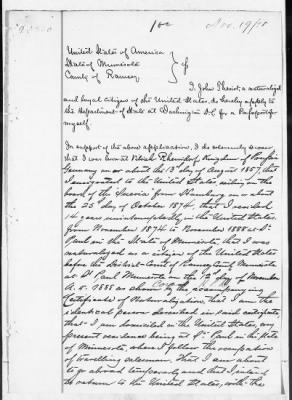 100 Nov. 19/88
United States of America
State of Minnesota } ss
County of Ramsey
I, John Theist, a naturalized
and loyal citizen of the United States, do hereby apply to
the Department of State at Washington D.C. for a Passport for
myself.
In support of the above application, I do solemnly swear
that I was born at Prussia, Kingdom of
Germany on or about the 13th day of August 1857, that
I emigrated to the United States, sailing on the
board of the Suevia from Hamburg on or about
the 25 day of October 1874, that I resided
14 years uninterruptedly in the United States
from November 1874 to November 1888 at St.
Paul in the State of Minnesota, that I was
naturalized as a citizen of the United States
before the District Court of Ramsey County Minnesota
at St Paul Minnesota on the 12th day of November
A.D. 1888 as shown by the accompanying
Certificate of Naturalization, that I am the
identical person described in said certificate,
that I am domiciled in the United States, my
present residence being at St. Paul in the State
of Minnesota, where I follow the occupation
of travelling salesman, that I am about
to go abroad temporarily and that I intend
to return to the United States, with the